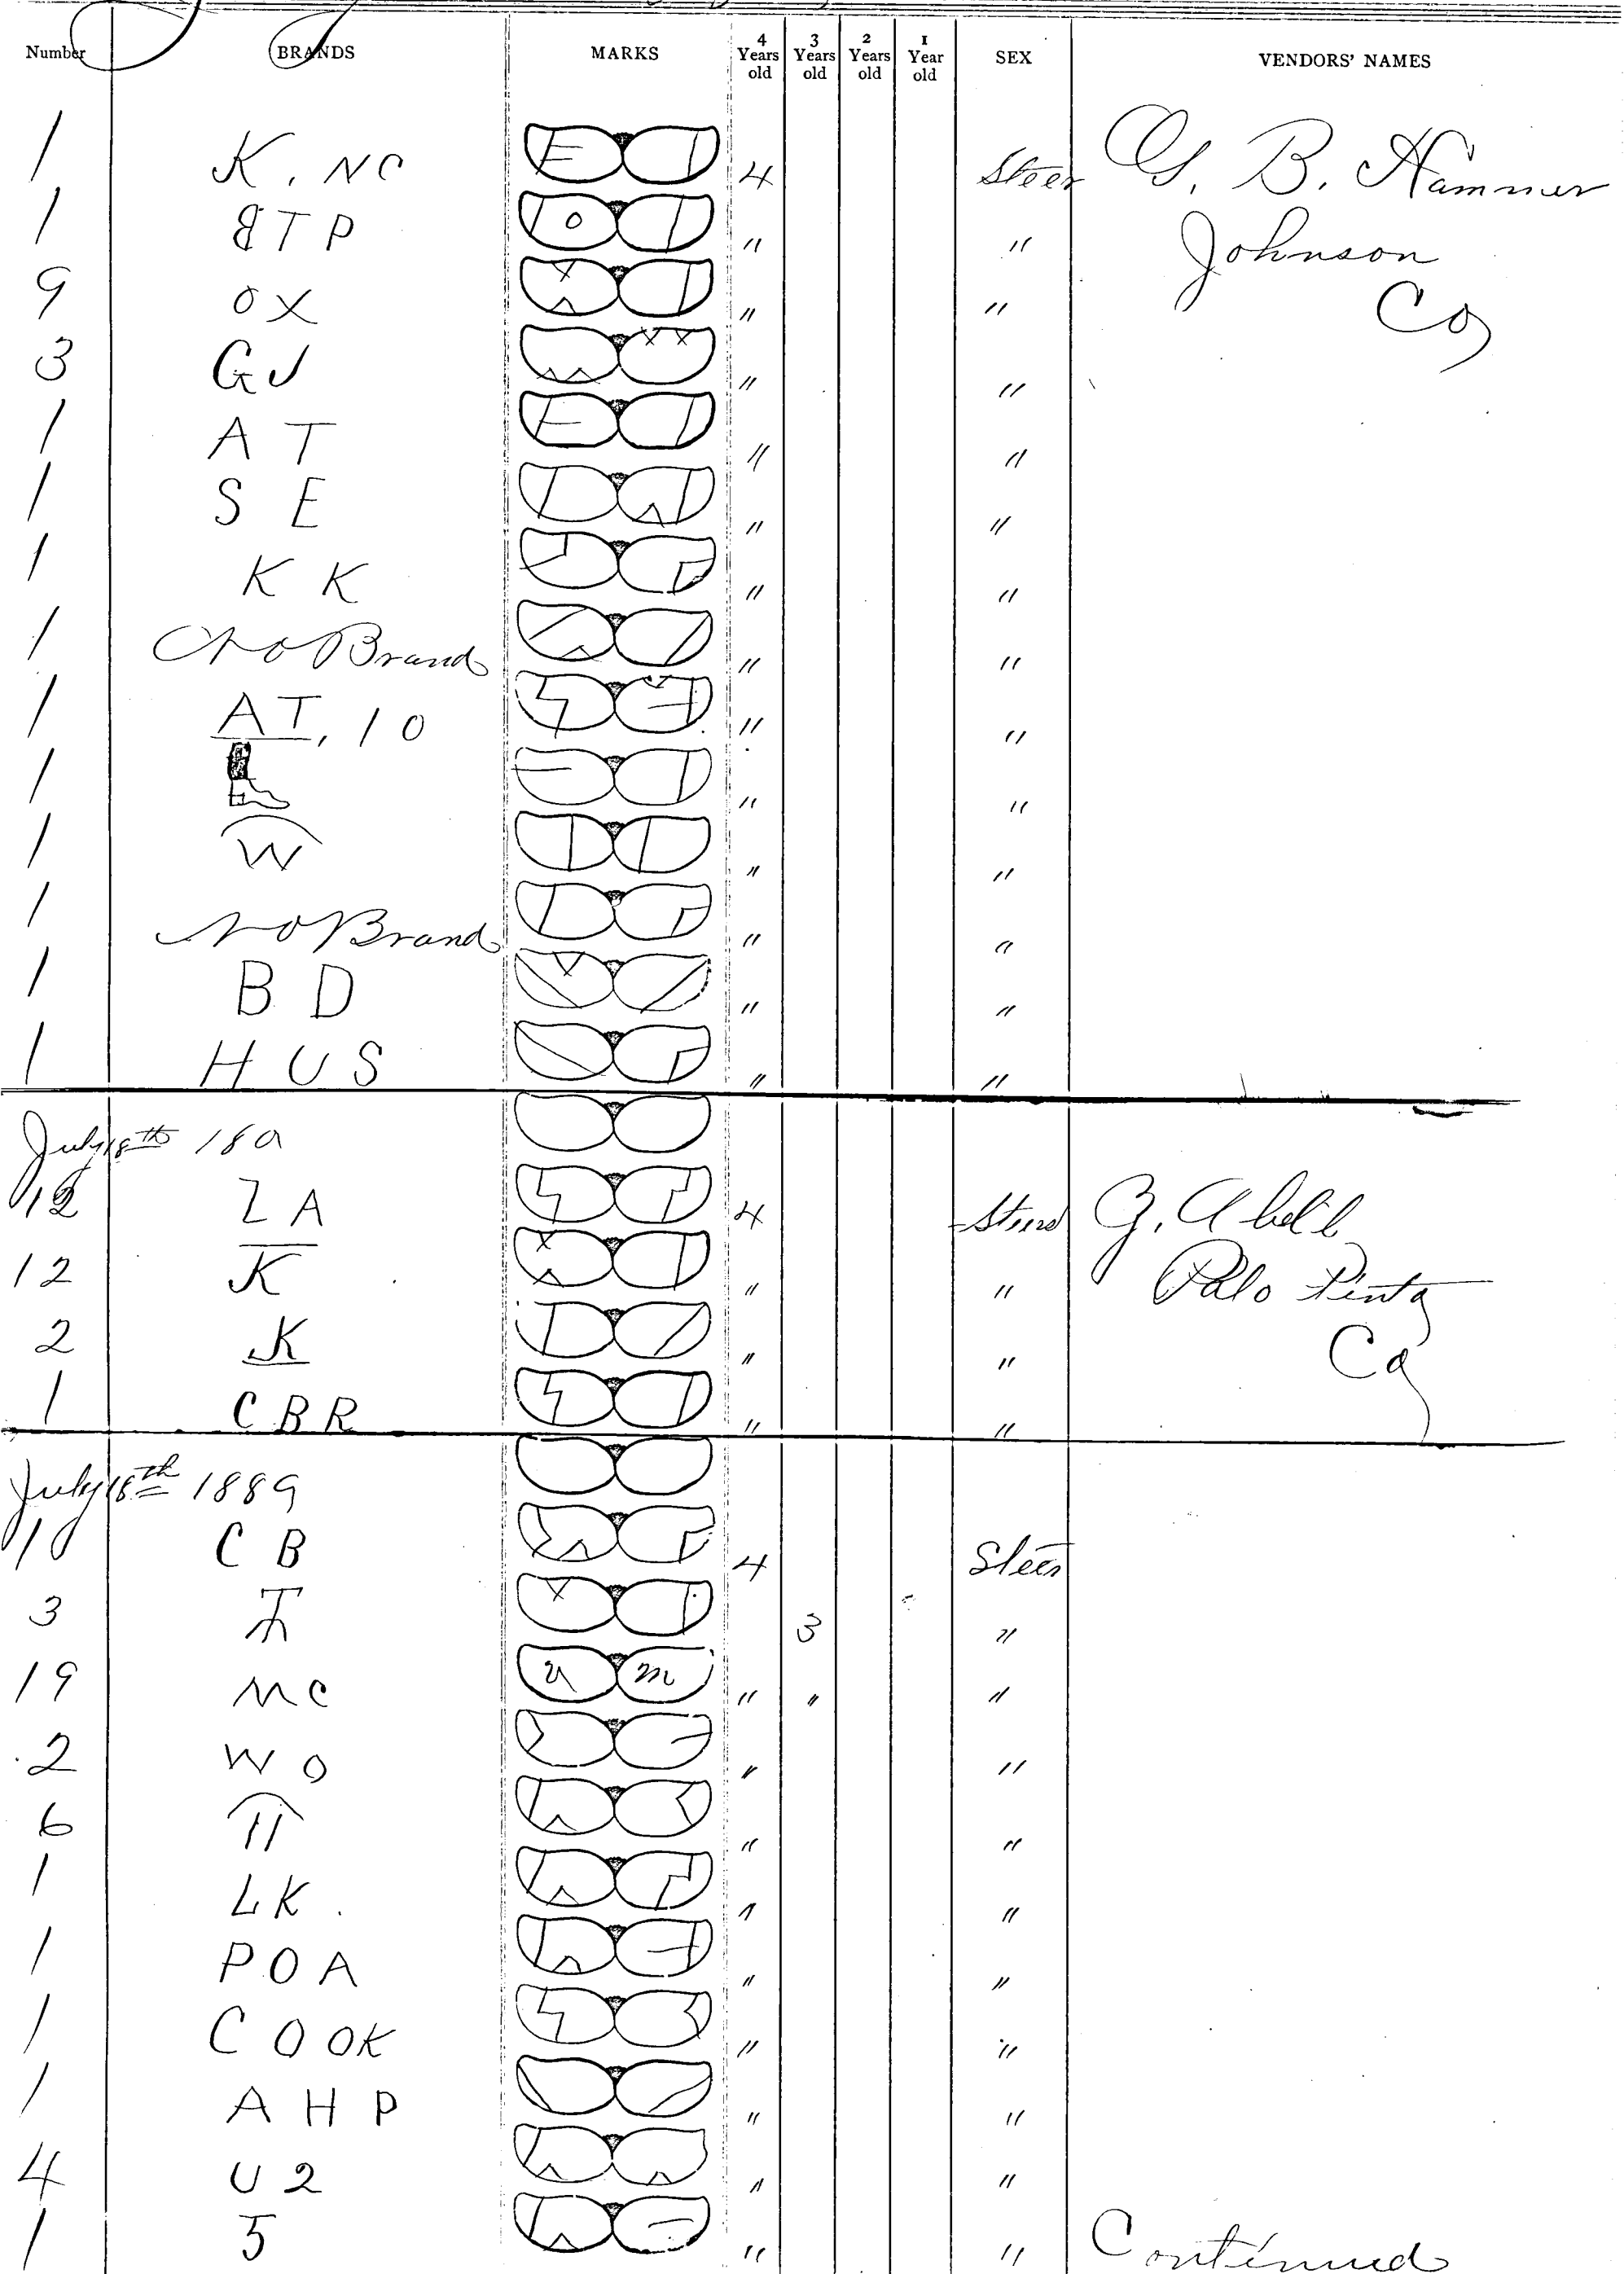 Number BRANDS MARKS 4 Years old 3 Years old 2 Years old 1 Year old SEX VENDORS' NAMES
1 K, NC 4 Steer G. B. Hammer
1 8TP " " Johnson
9 OX " " Co
3 GJ " "
1 A T " "
1 S E " "
1 K K " "
1 No Brand " "
1 AT, 10 " "
1 " "
1 W " "
1 No Brand " "
1 B D " "
1 H U S " "
July 18th 18
12 Z A 4 Steers
12 K " " Palo Pinto
2 K " " Co
1 C B R " "
July 18th 1889
10 C B 4 Steers
3 3 "
19 MC u m " " "
2 W O " "
6 " "
1 LK. " "
1 P O A " "
1 C O O K " "
1 A H P " "
4 U 2 " "
1 5 " " Continued